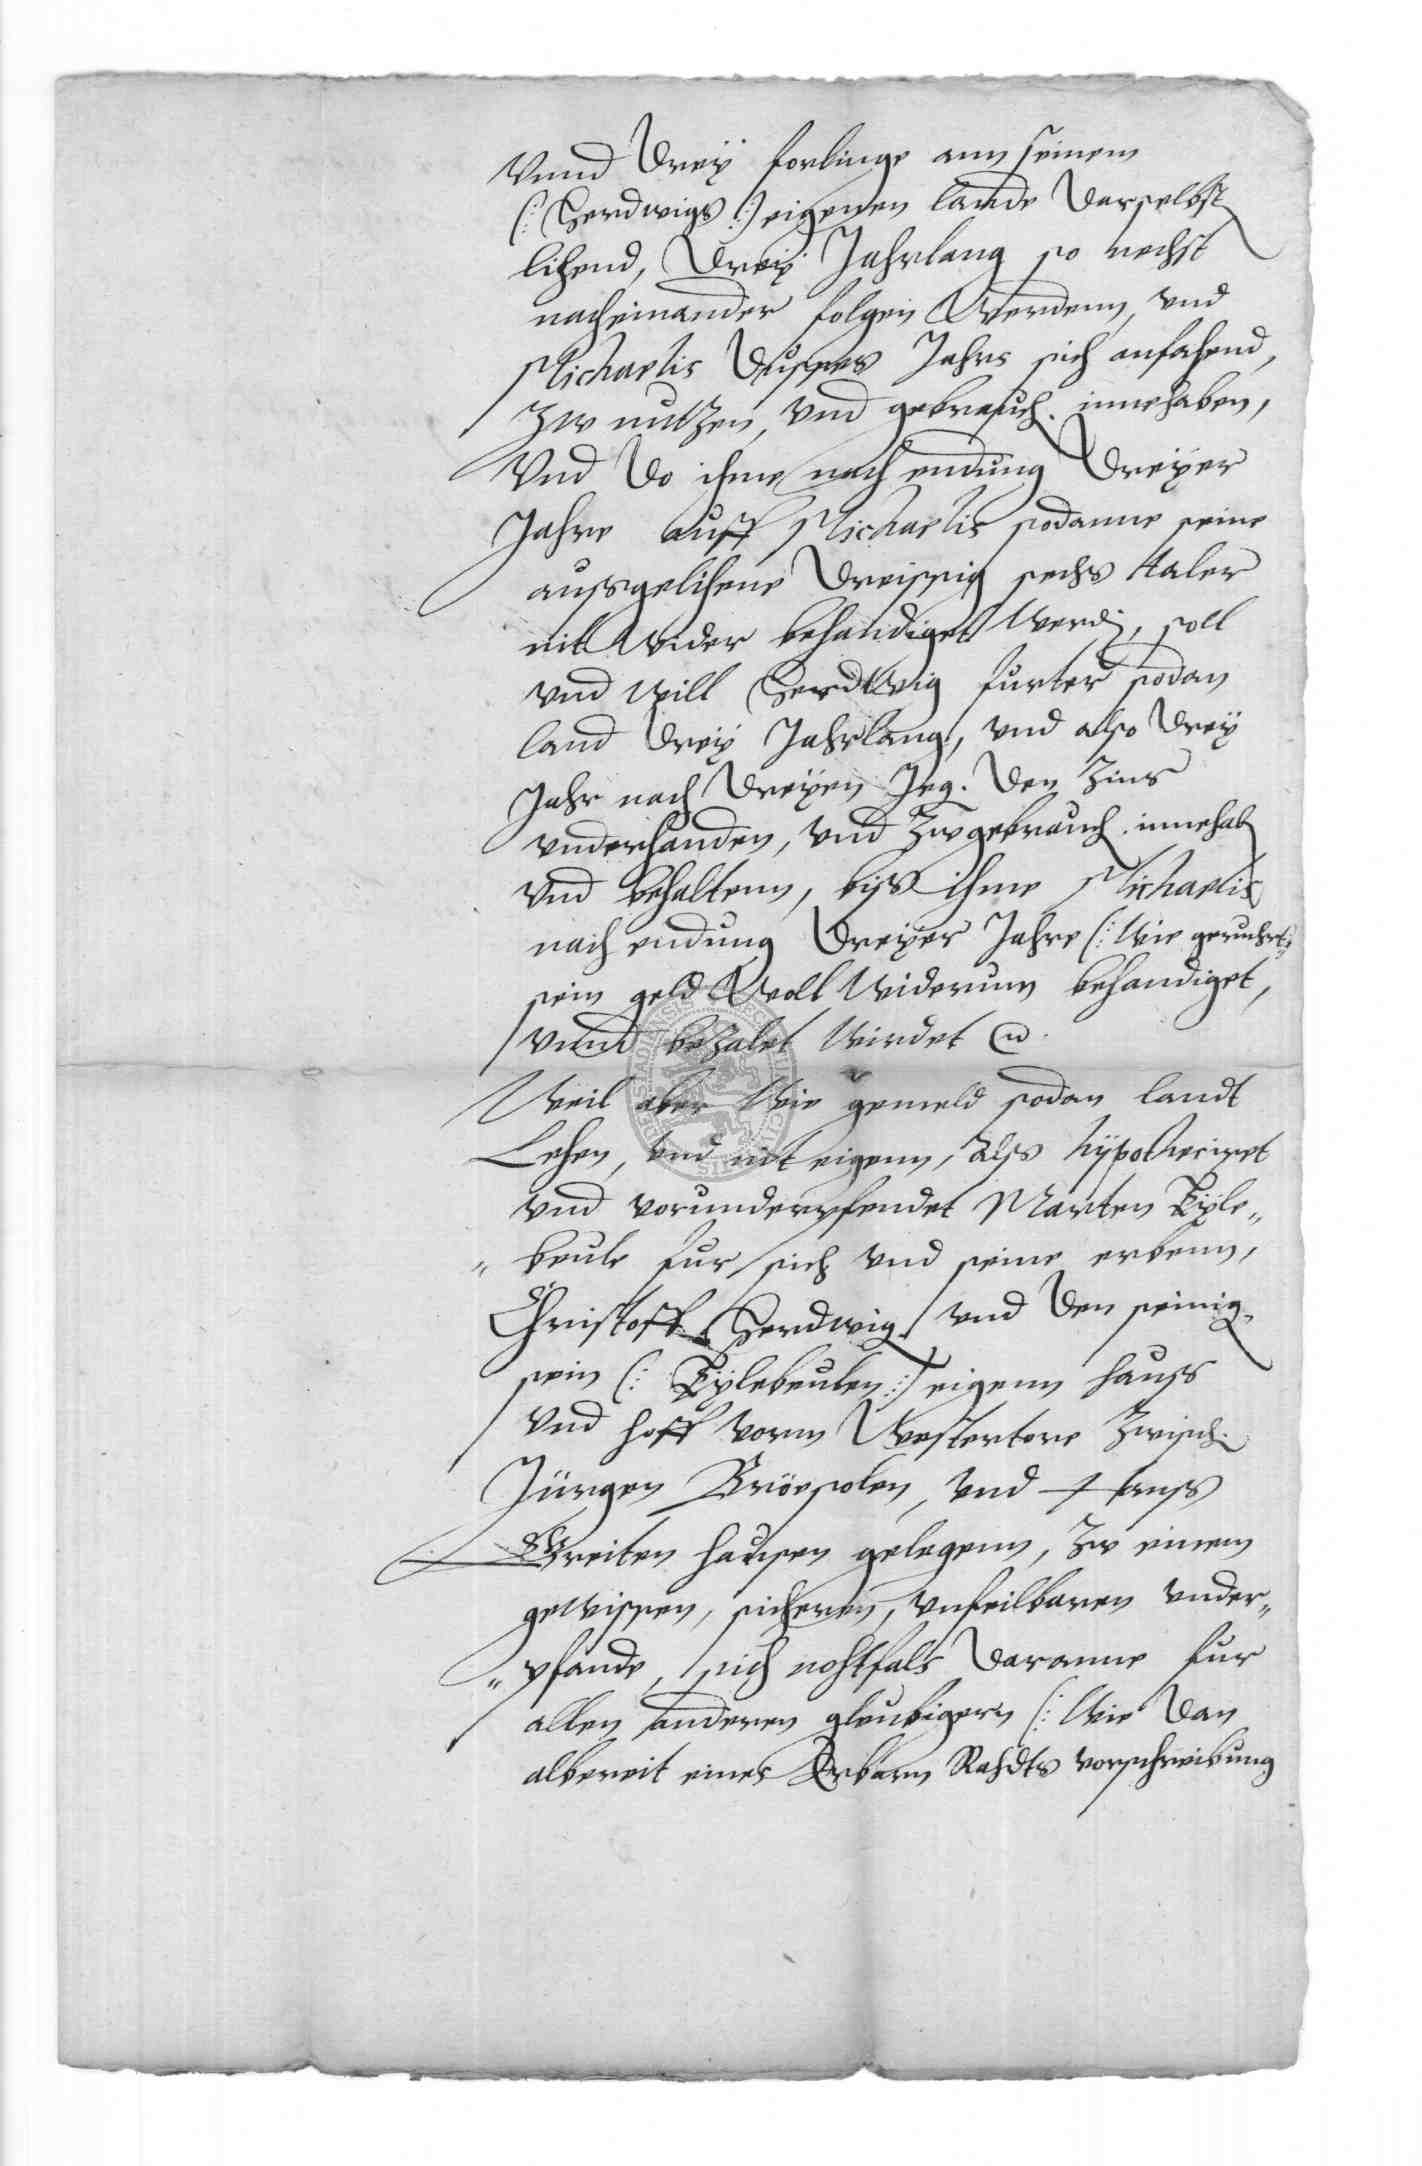 Vnnd Dreÿ forlinge ann seinem
(: Herdwigs :) eigenen lande Darselbst
lihend, Dreÿ Jahrlang so nechst
nacheinander folgen Werdenn, vnd
Michaelis Dusses Jahrs sich anfahend,
Zw nutzen, vnd gebrauch. innehaben,
Vnd Do ihme nach endung Dreÿer
Jahre auff Michaelis sodanne seine
aussgelihene Dreissig sechs taler
nit Wider behandiget Werd, soll
vnd Will Herdtwig furter sodan
land Dreÿ Jahrlang, vnd also Dreÿ
Jahr nach Dreÿen Den Zins
vnderhanden, vnd Zw gebrauch. innehab
vnd behaltenn, biss ihme Michaelis
nach endung Dreÿer Jahre (: Wie geruhrt :)
sein geld Woll Widerumn behandiget,
vnnd bezalet Wirdet
Weil aber Wie gemeld sodan landt
Lehen, vnd nit eigenn, Alss hÿpotheciret
vnd vorunderpfendet Marten Tÿle„
„ beule fur sich vnd seine erbenn,
Christoff Herdwig vnd Den seinig.
sein (: Tÿlebeulen :) eigenn hauss
vnd hoff vorm Westertore Zwisch.
Jürgen vnd Hanss
Greiten hausen gelegenn, Zw einem
gewissen, sicheren, vnfeilbaren vnder„
„ pfande, sich nohtfals Daranne fur
allen anderen gleubigern (: Wie Dan
albereit eines Erbarn Rahdts vorschreibung